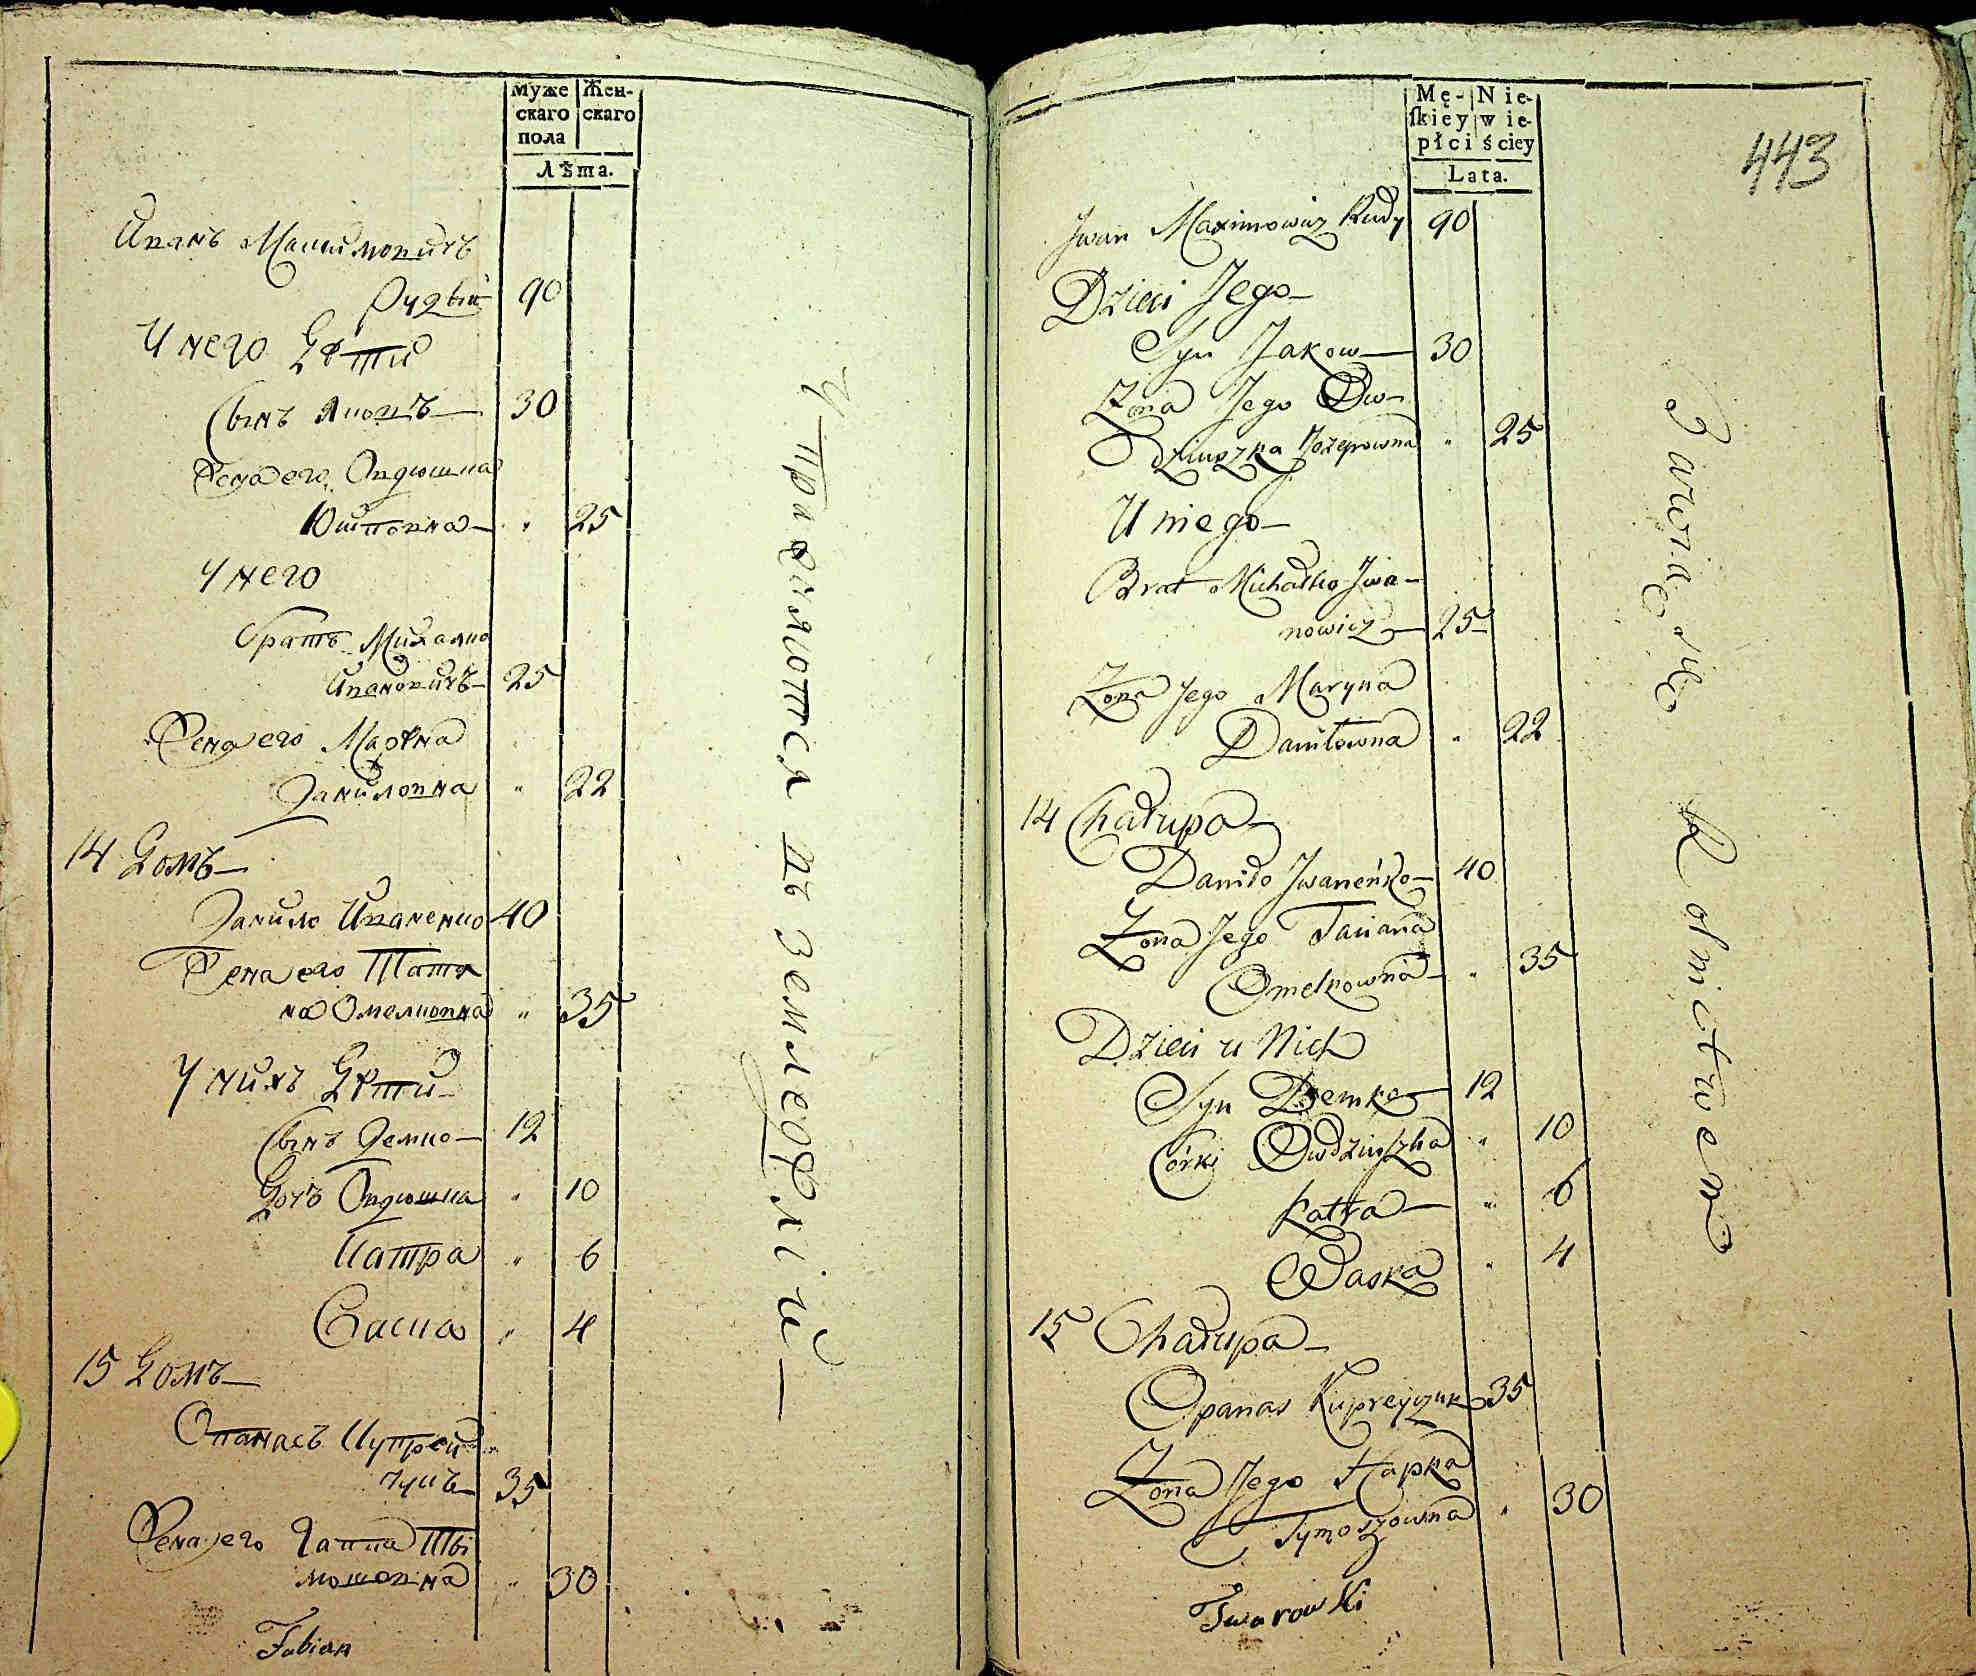 Муже Жен-
скаго скаго
пола
Лѣта.
Иванъ Максимовичъ
Рудый 90
У него Дѣти
Сынъ Яковъ 30
Жена его Овдюшка
Юшповна " 25
У него
Братъ Михалко
Ивановичъ 25
Жена его Марина
Даниловна " 22
14 Домъ
Данило Иваненко 40
Жена его Татя
на Омелковна " 35
У нихъ Дѣти
Сынъ Демко 12
Дочъ Овдюшка " 10
Катра " 6
Васка " 4
15 Домъ
Опанасъ Купрей
чукъ 35
Жена его Гапка Ты
мошовна " 30
Fabian
Упражняются въ земледѣліи
Mę- Nie-
skiey wie-
płci ściey
Lata.
443
Jwan Maximowicz Rudy 90
Dzieci Jego
Syn Jakow 30
Żona Jego Ow-
dziuszka Jozepowna " 25
U niego
Brat Michałko Jwa-
nowicz 25
Żona Jego Maryna
Daniłowna " 22
14 Chałupa
Daniło Jwaneńko 40
Żona Jego Taciana
Omelkowna " 35
Dzieci u Nich
Syn Demko 12
Córki Owdziuszka " 10
Katra " 6
Waska " 4
15 Chałupa
Opanas Kupreyczuk 35
Żona Jego Hapka
Tymoszowna " 30
Twarowski
Zawiaduie Rolnictwem